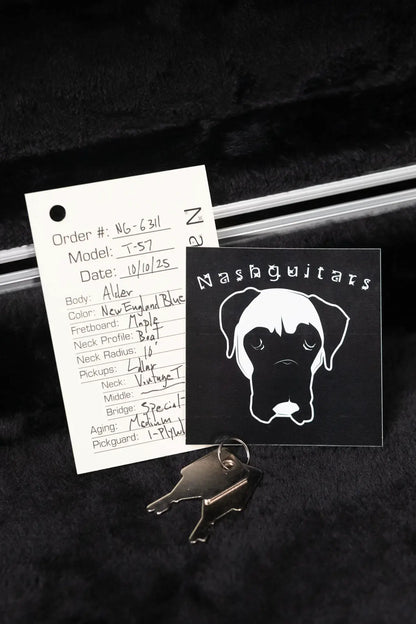 Order #: NG-6311
Model: T-57
Date: 10/10/25
Body: Alder
Color: New England Blue
Fretboard: Maple
Neck Profile: Boat
Neck Radius: 10
Pickups: Lollar
Neck: Vintage T
Middle:
Bridge: Special-
Aging: Medium
Pickguard: 1-Ply
Nashguitars